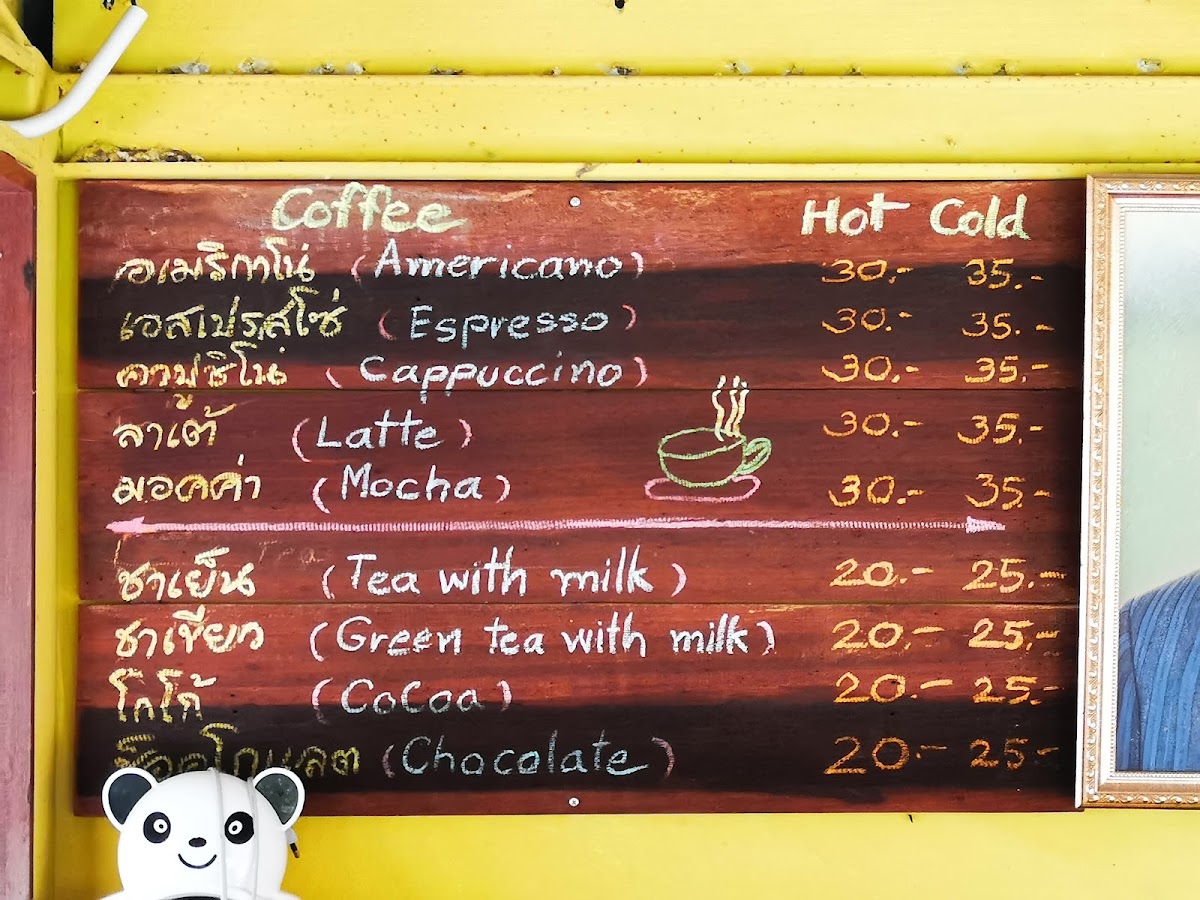 Coffee Hot Cold
อเมริกาโน่ (Americano) 30.- 35.-
เอสเปรสโซ่ (Espresso) 30.- 35.-
คาปูชิโน่ (Cappuccino) 30.- 35.-
ลาเต้ (Latte) 30.- 35.-
มอคค่า (Mocha) 30.- 35.-
ชาเย็น (Tea with milk) 20.- 25.-
ชาเขียว (Green tea with milk) 20.- 25.-
โกโก้ (CoCoa) 20.- 25.-
(Chocolate) 20.- 25.-